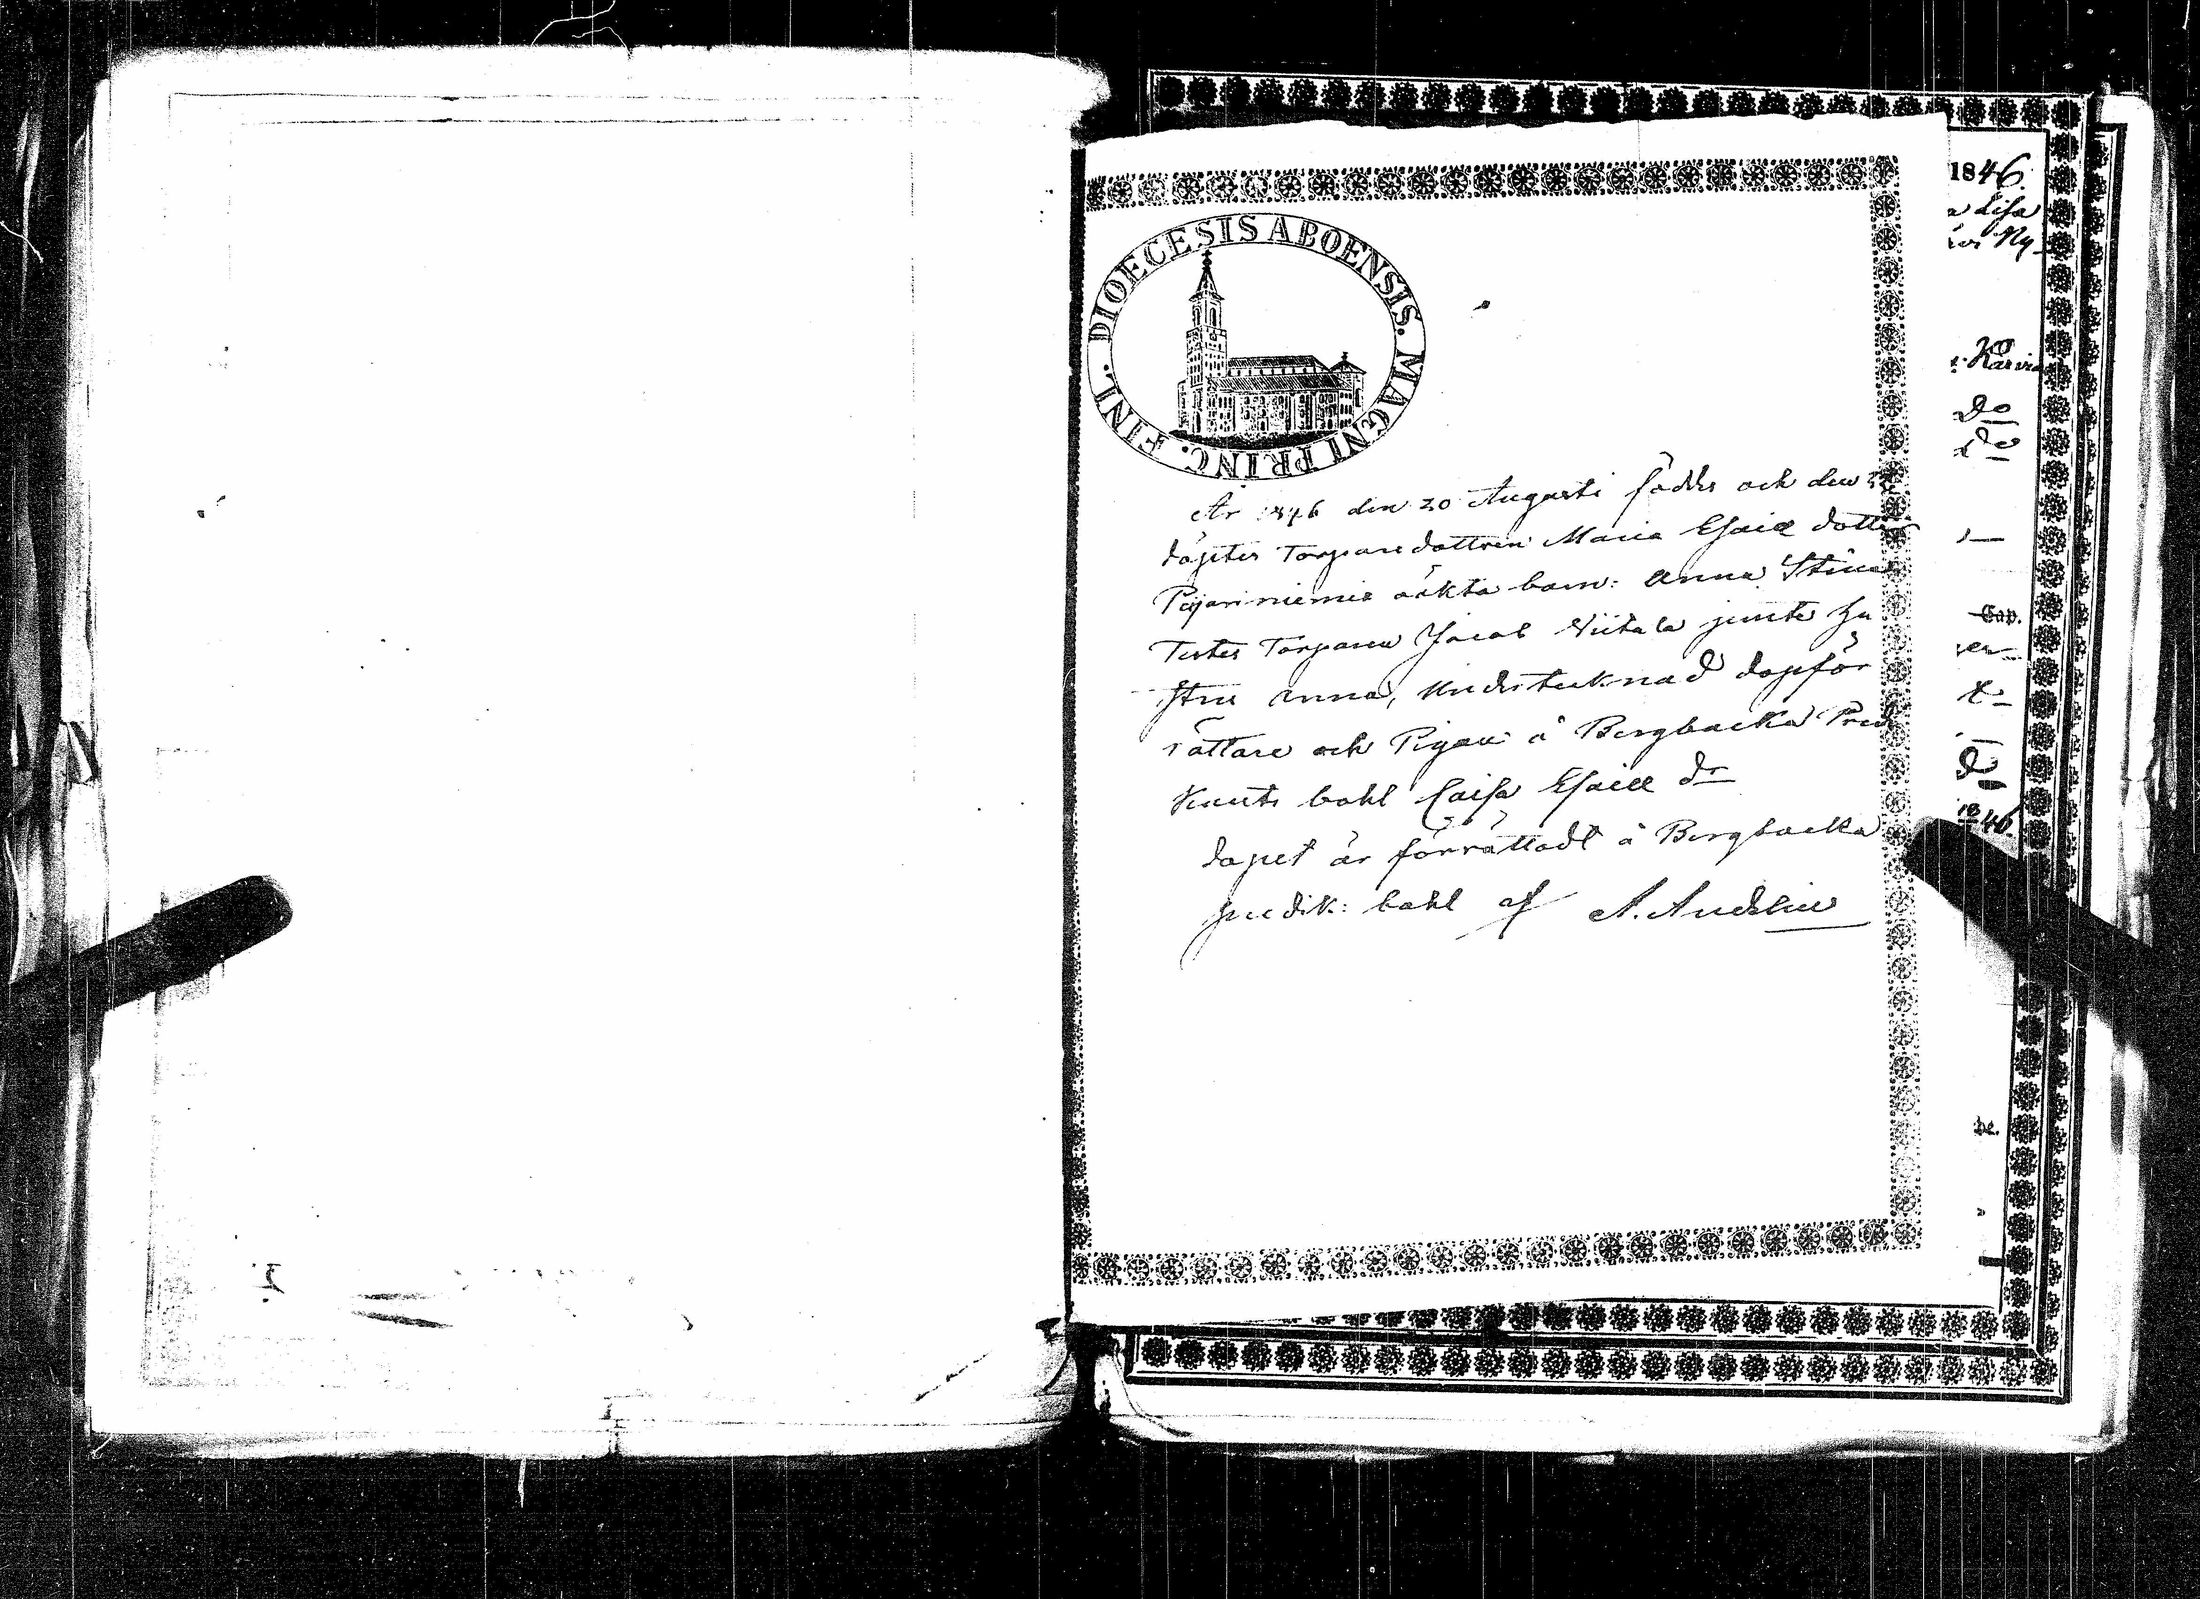 DIOECESIS ABOENSIS. MAGNI PRINC. FINL.
År 1846 den 20 Augusti föddes och den 22
döptes Torparedottren Maria Esaiæ dotter
Pijariniemis oäkta barn: Anna Stina
Testes Torparen Jacob Niitala jemte hu
stru Anna, Undertecknad dopför
rättare och Pigan å Bergbacka Pred
kants bohl Caisa Esaiæ dr
dopet är förrättadt å Bergbacka
predik: bohl af A. Andelin
1846.
Lisa
Ny-
Karvia
Do
do
Cap.
1846